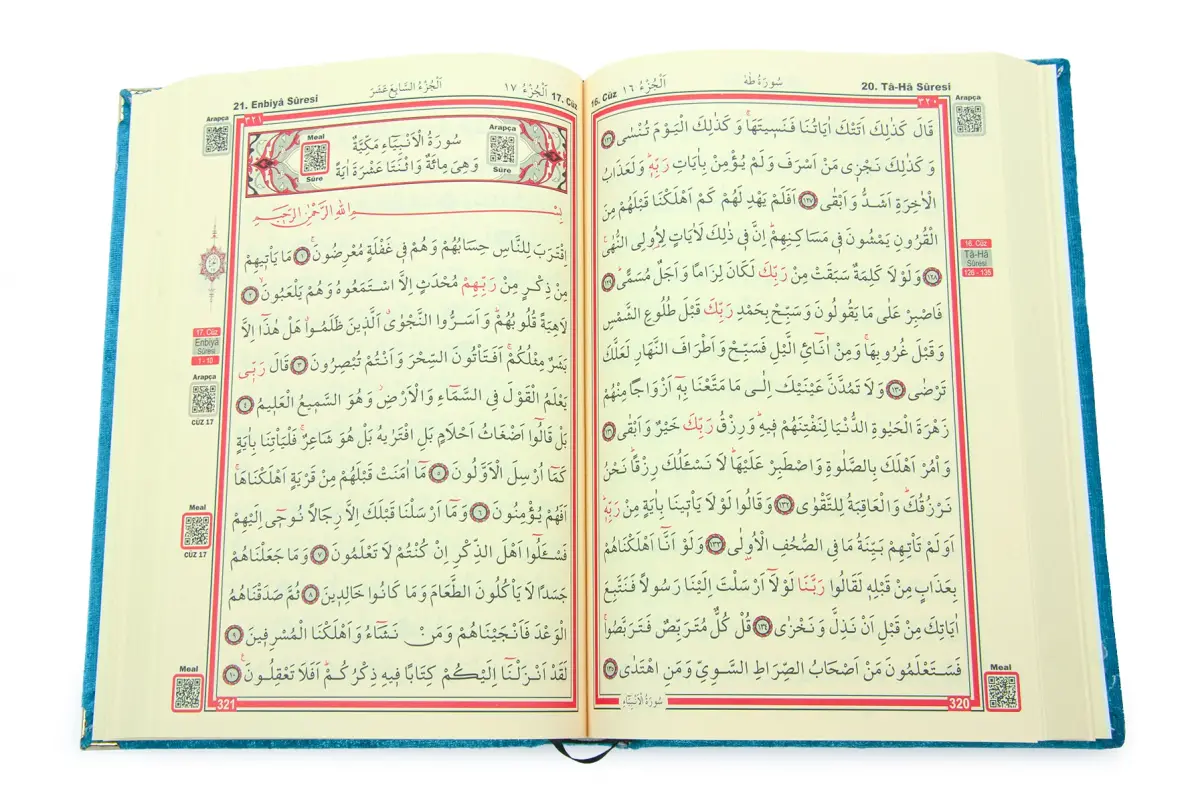 20. Tâ-Hâ Sûresi
سُورَةُ طٰهٰ
اَلْجُزْءُ ١٦
16. Cüz
٣٢٠
Arapça
قَالَ كَذٰلِكَ اَتَتْكَ اٰيَاتُنَا فَنَسِيتَهَاۚ وَ كَذٰلِكَ الْيَوْمَ تُنْسٰى ﴿١٢٦﴾
وَ كَذٰلِكَ نَجْزِي مَنْ اَسْرَفَ وَلَمْ يُؤْمِنْ بِاٰيَاتِ رَبِّهٖۜ وَ لَعَذَابُ
الْاٰخِرَةِ اَشَدُّ وَ اَبْقٰى ﴿١٢٧﴾ اَفَلَمْ يَهْدِ لَهُمْ كَمْ اَهْلَكْنَا قَبْلَهُمْ مِنَ
الْقُرُونِ يَمْشُونَ فِي مَسَاكِنِهِمْۜ اِنَّ فِي ذٰلِكَ لَاٰيَاتٍ لِاُولِي النُّهٰى
﴿١٢٨﴾ وَلَوْ لَا كَلِمَةٌ سَبَقَتْ مِنْ رَبِّكَ لَكَانَ لِزَامًا وَ اَجَلٌ مُسَمًّى ﴿١٢٩﴾
فَاصْبِرْ عَلٰى مَا يَقُولُونَ وَ سَبِّحْ بِحَمْدِ رَبِّكَ قَبْلَ طُلُوعِ الشَّمْسِ
وَ قَبْلَ غُرُوبِهَاۚ وَمِنْ اٰنَٓائِ الَّيْلِ فَسَبِّحْ وَ اَطْرَافَ النَّهَارِ لَعَلَّكَ
تَرْضٰى ﴿١٣٠﴾ وَلَا تَمُدَّنَّ عَيْنَيْكَ اِلٰى مَا مَتَّعْنَا بِهٖٓ اَزْوَاجًا مِنْهُمْ
زَهْرَةَ الْحَيٰوةِ الدُّنْيَا لِنَفْتِنَهُمْ فِيهِۜ وَ رِزْقُ رَبِّكَ خَيْرٌ وَ اَبْقٰى ﴿١٣١﴾
وَ أْمُرْ اَهْلَكَ بِالصَّلٰوةِ وَ اصْطَبِرْ عَلَيْهَاۜ لَا نَسْـَٔلُكَ رِزْقًاۜ نَحْنُ
نَرْزُقُكَۜ وَ الْعَاقِبَةُ لِلتَّقْوٰى ﴿١٣٢﴾ وَ قَالُوا لَوْ لَا يَأْتِينَا بِاٰيَةٍ مِنْ رَبِّهٖۜ
اَوَ لَمْ تَأْتِهِمْ بَيِّنَةُ مَا فِي الصُّحُفِ الْاُولٰى ﴿١٣٣﴾ وَ لَوْ اَنَّٓا اَهْلَكْنَاهُمْ
بِعَذَابٍ مِنْ قَبْلِهٖ لَقَالُوا رَبَّنَا لَوْ لَٓا اَرْسَلْتَ اِلَيْنَا رَسُولًا فَنَتَّبِعَ
اٰيَاتِكَ مِنْ قَبْلِ اَنْ نَذِلَّ وَ نَخْزٰى ﴿١٣٤﴾ قُلْ كُلٌّ مُتَرَبِّصٌ فَتَرَبَّصُواۚ
فَسَتَعْلَمُونَ مَنْ اَصْحَابُ الصِّرَاطِ السَّوِيِّ وَ مَنِ اهْتَدٰى ﴿١٣٥﴾
16. Cüz
Tâ-Hâ
Sûresi
126 - 135
Meal
320
سُورَةُ الْاَنْبِيَٓاءِ
17. Cüz
اَلْجُزْءُ ١٧
اَلْجُزْءُ السَّابِعَ عَشَرَ
21. Enbiyâ Sûresi
٣٢١
Arapça
Arapça
Sûre
سُورَةُ الْاَنْبِيَٓاءِ مَكِّيَّةٌ
وَهِيَ مِائَةٌ وَ اثْنَتَا عَشْرَةَ اٰيَةً
Meal
Sûre
بِسْــــمِ اللّٰهِ الرَّحْمٰنِ الرَّحِيمِ
اِقْتَرَبَ لِلنَّاسِ حِسَابُهُمْ وَ هُمْ فِي غَفْلَةٍ مُعْرِضُونَۚ ﴿١﴾ مَا يَأْتِيهِمْ
مِنْ ذِكْرٍ مِنْ رَبِّهِمْ مُحْدَثٍ اِلَّا اسْتَمَعُوهُ وَ هُمْ يَلْعَبُونَۙ ﴿٢﴾
لَاهِيَةً قُلُوبُهُمْۜ وَ اَسَرُّوا النَّجْوٰىۗ اَلَّذِينَ ظَلَمُواۗ هَلْ هٰذَٓا اِلَّا
بَشَرٌ مِثْلُكُمْۚ اَفَتَأْتُونَ السِّحْرَ وَ اَنْتُمْ تُبْصِرُونَ ﴿٣﴾ قَالَ رَبِّي
يَعْلَمُ الْقَوْلَ فِي السَّمَٓاءِ وَ الْاَرْضِۘ وَ هُوَ السَّمِيعُ الْعَلِيمُ ﴿٤﴾
بَلْ قَالُٓوا اَضْغَاثُ اَحْلَامٍ بَلِ افْتَرٰيهُ بَلْ هُوَ شَاعِرٌۚ فَلْيَأْتِنَا بِاٰيَةٍ
كَمَٓا اُرْسِلَ الْاَوَّلُونَ ﴿٥﴾ مَٓا اٰمَنَتْ قَبْلَهُمْ مِنْ قَرْيَةٍ اَهْلَكْنَاهَاۚ
اَفَهُمْ يُؤْمِنُونَ ﴿٦﴾ وَ مَٓا اَرْسَلْنَا قَبْلَكَ اِلَّا رِجَالًا نُوحِٓي اِلَيْهِمْ
فَسْـَٔلُٓوا اَهْلَ الذِّكْرِ اِنْ كُنْتُمْ لَا تَعْلَمُونَ ﴿٧﴾ وَ مَا جَعَلْنَاهُمْ
جَسَدًا لَا يَأْكُلُونَ الطَّعَامَ وَ مَا كَانُوا خَالِدِينَ ﴿٨﴾ ثُمَّ صَدَقْنَاهُمُ
الْوَعْدَ فَاَنْجَيْنَاهُمْ وَ مَنْ نَشَٓاءُ وَ اَهْلَكْنَا الْمُسْرِفِينَ ﴿٩﴾
لَقَدْ اَنْزَلْنَٓا اِلَيْكُمْ كِتَابًا فِيهِ ذِكْرُكُمْۜ اَفَلَا تَعْقِلُونَ۟ ﴿١٠﴾
17. Cüz
Enbiyâ
Sûresi
1 - 10
Arapça
CÜZ 17
Meal
CÜZ 17
Meal
321